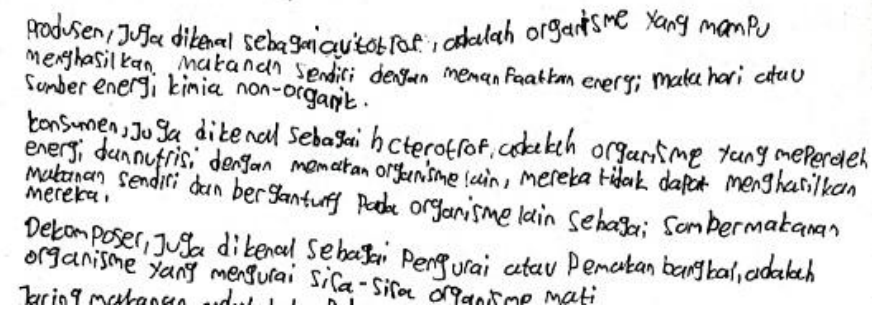 Produsen, Juga dikenal sebagai autotrof, adalah organisme yang mampu
menghasilkan makanan sendiri dengan memanfaatkan energi matahari atau
Sumber energi kimia non-organik.
konsumen, Juga dikenal sebagai heterotrof, adalah organisme yang meperoleh
energi dan nutrisi dengan memakan organisme lain, mereka tidak dapat menghasilkan
makanan sendiri dan bergantung pada organisme lain sebagai sombermakanan
mereka.
Dekomposer, Juga dikenal sebagai Pengurai atau Pemakan bangkai, adalah
organisme yang mengurai sisa-sisa organisme mati
Jaring makanan